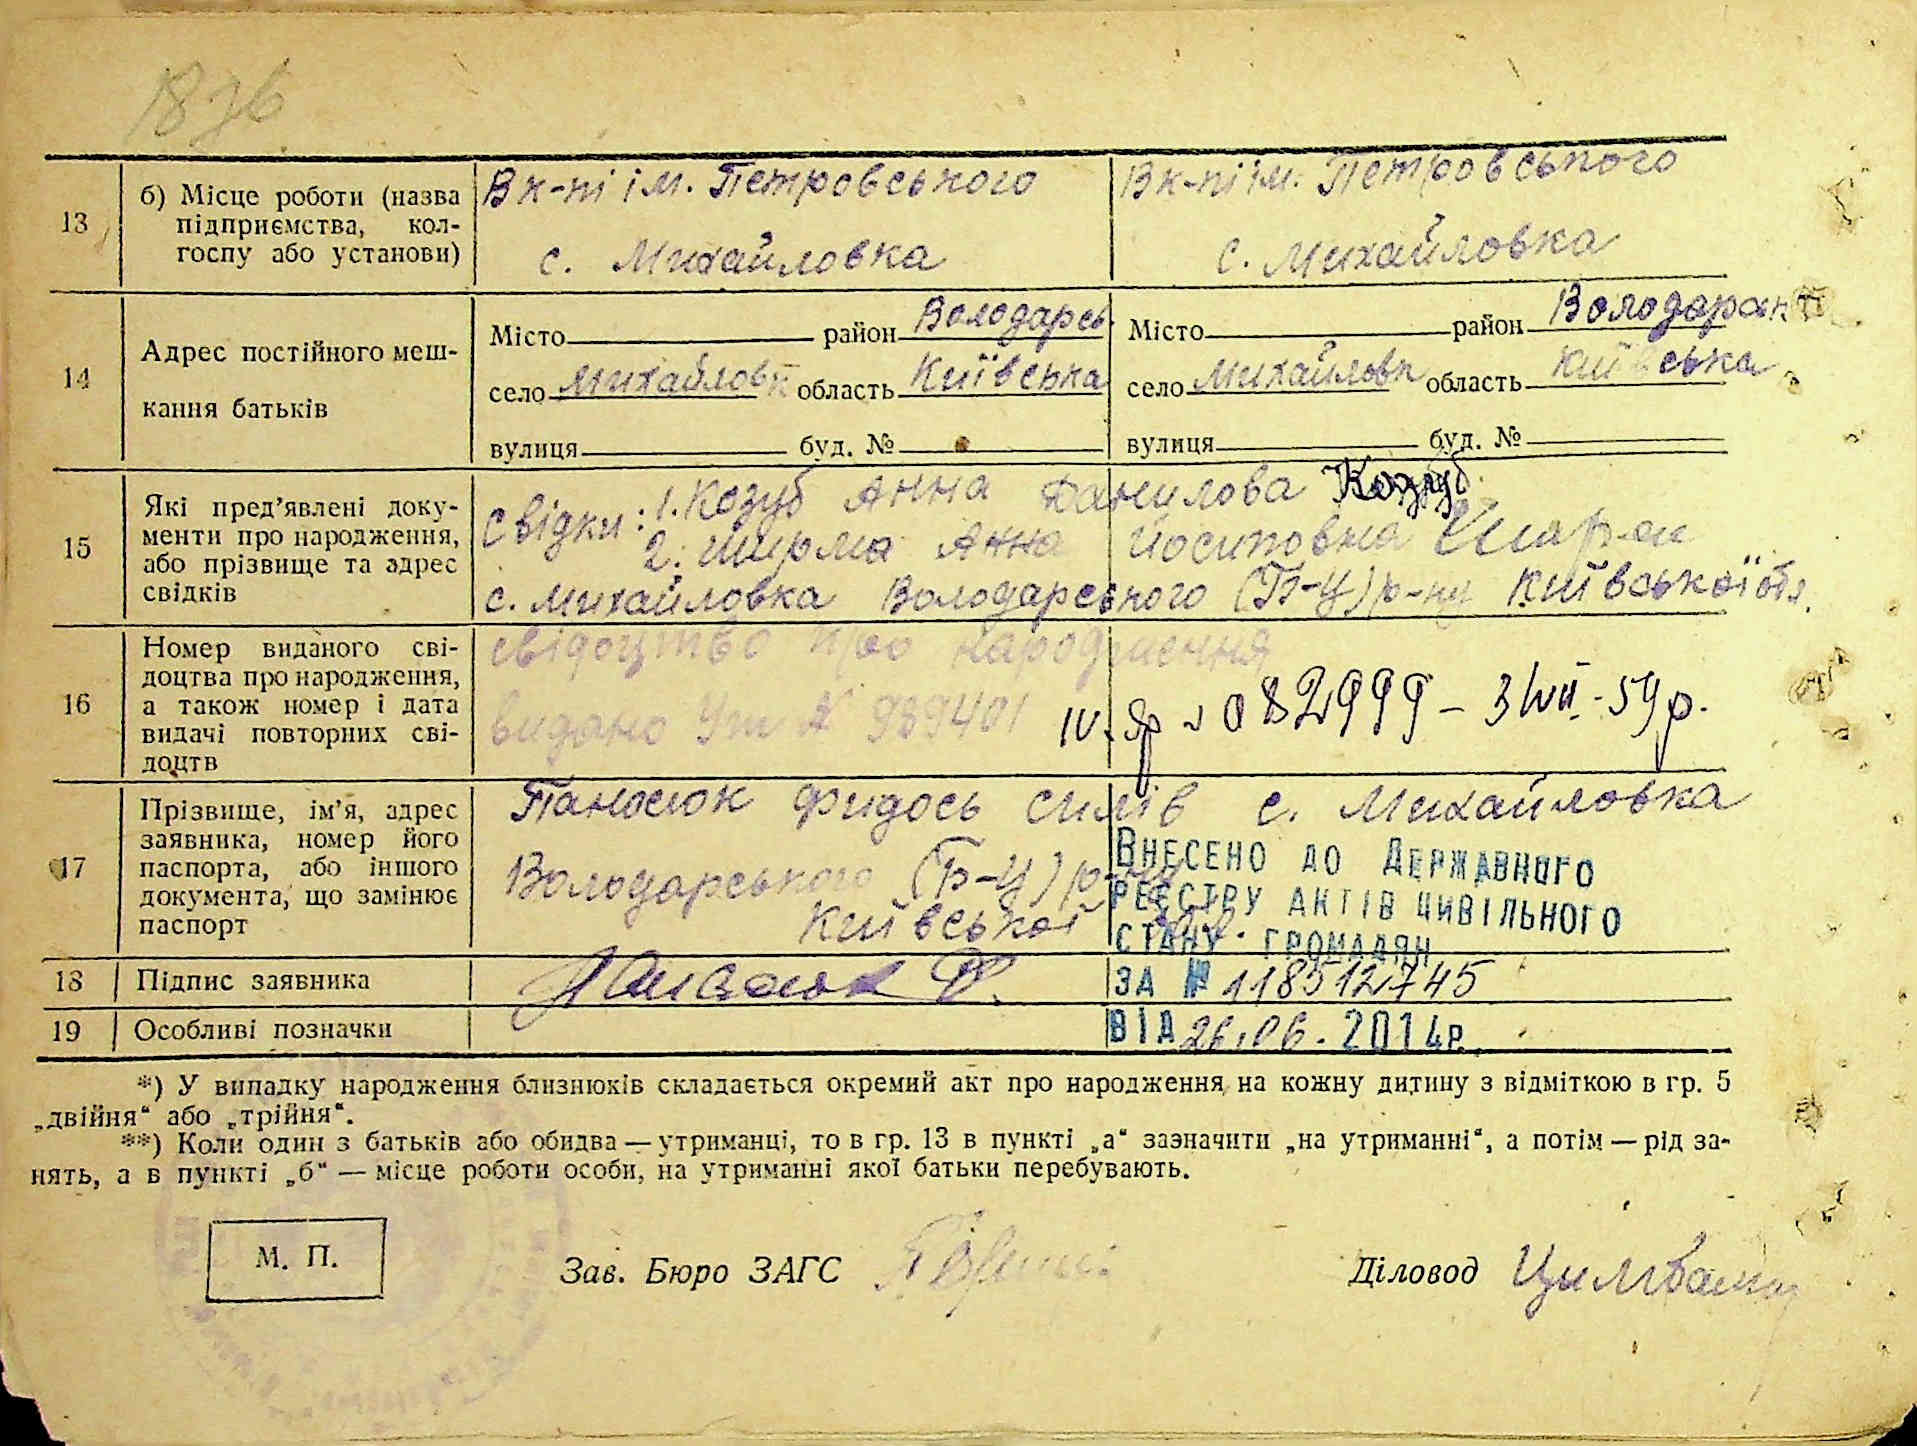 13 б) Місце роботи (назва підприємства, колгоспу або установи)
В к-пі ім. Петровського
с. Михайловка
В к-пі ім. Петровського
с. Михайловка
14 Адрес постійного мешкання батьків
Місто район Володарськ
село Михайловк область Київська
вулиця буд. №
Місто район Володарськ
село Михайловк область Київська
вулиця буд. №
15 Які пред’явлені документи про народження, або прізвище та адрес свідків
Свідки: 1. Козуб Анна Данилова Козуб
2. Ширма Анна Йосиповна
с. Михайловка Володарського (Б-Ц) р-ну Київської обл.
16 Номер виданого свідоцтва про народження, а також номер і дата видачі повторних свідоцтв
свідоцтво про народження
видано Ут № 989401 IV. 082999 – 3/VII - 59 р.
17 Прізвище, ім’я, адрес заявника, номер його паспорта, або іншого документа, що замінює паспорт
Панасюк Фидось Силів с. Михайловка
Володарського (Б-Ц) р-ну
Київської обл.
Внесено до Державного
реєстру актів цивільного
стану громадян
18 Підпис заявника
Панасюк Ф.
за № 118512745
19 Особливі позначки
від 26.06. 2014р.
*) У випадку народження близнюків складається окремий акт про народження на кожну дитину з відміткою в гр. 5
„двійня“ або „трійня“.
**) Коли один з батьків або обидва — утриманці, то в гр. 13 в пункті „а“ зазначити „на утриманні“, а потім — рід за-
нять, а в пункті „б“ — місце роботи особи, на утриманні якої батьки перебувають.
М. П.
Зав. Бюро ЗАГС
Діловод